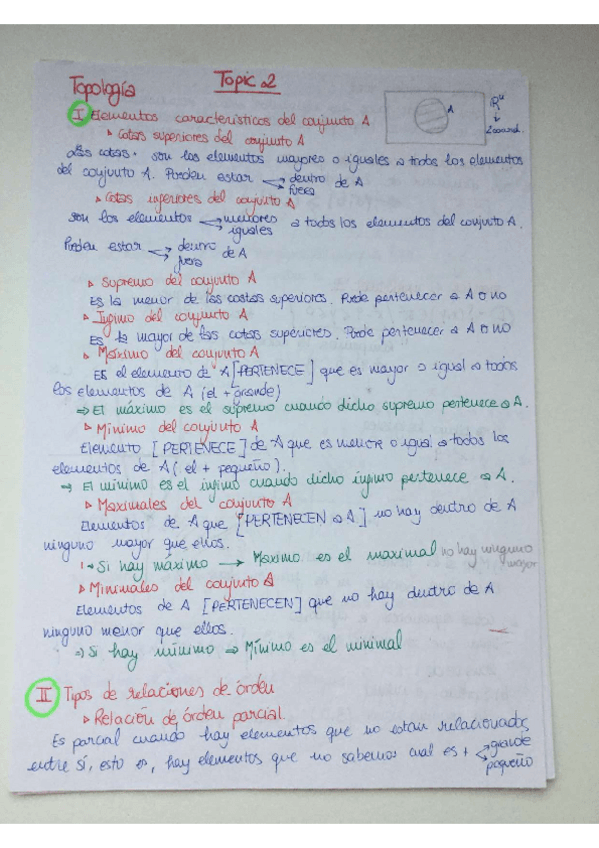 Topología Topic 2
I Elementos característicos del conjunto A
▸ Cotas superiores del conjunto A
A
R²
2 coord.
Las cotas. son los elementos mayores o iguales a todos los elementos
del conjunto A. Pueden estar dentro fuera de A
▸ Cotas inferiores del conjunto A
son los elementos menores iguales a todos los elementos del conjunto A.
Pueden estar dentro fuera de A
▸ Supremo del conjunto A
Es la menor de las cotas superiores. Puede pertenecer a A o no
▸ Ínfimo del conjunto A
Es la mayor de las cotas superiores. Puede pertenecer a A o no
▸ Máximo del conjunto A
Es el elemento de A [PERTENECE] que es mayor o igual a todos
los elementos de A (el + grande)
⇒ El máximo es el supremo cuando dicho supremo pertenece a A.
▸ Mínimo del conjunto A
Elemento [PERTENECE] de A que es menor o igual a todos los
elementos de A (el + pequeño).
⇒ El mínimo es el ínfimo cuando dicho ínfimo pertenece a A.
▸ Maximales del conjunto A
Elementos de A que [PERTENECEN a A] no hay dentro de A
ninguno mayor que ellos.
↳ Si hay máximo → Maximo es el maximal no hay ninguno mayor
▸ Minimales del conjunto A
Elementos de A [PERTENECEN] que no hay dentro de A
ninguno menor que ellos.
⇒ Si hay mínimo ⇒ Mínimo es el minimal
II Tipos de relaciones de órden
▸ Relación de órden parcial.
Es parcial cuando hay elementos que no estan relacionados
entre sí, esto es, hay elementos que no sabemos cual es + grande pequeño